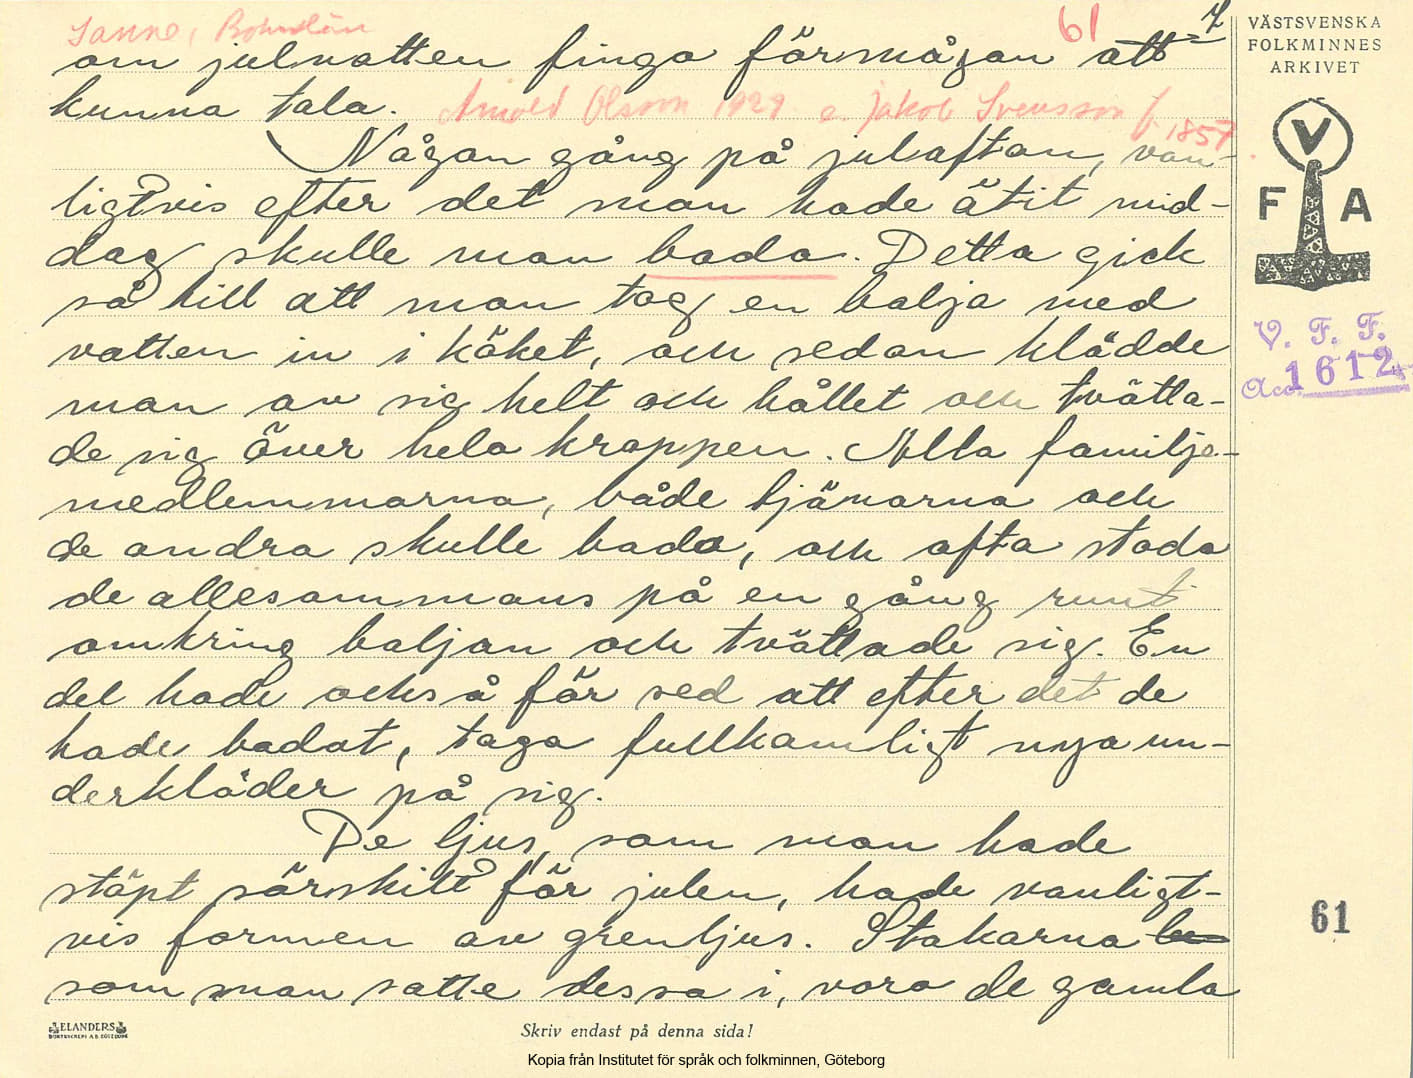 Sanne, Bohuslän
61
7
om julnatten finga förmågan att
kunna tala. Arnold Olsson 1929 e. Jakob Svensson f. 1857.
Någon gång på julaftan, van-
ligtvis efter det man hade ätit mid-
dag skulle man bada. Detta gick
så till att man tog en balja med
vatten in i köket, och sedan klädde
man av sig helt och hållet och tvätta-
de sig över hela kroppen. Alla familje-
medlemmarna, både tjänarna och
de andra skulle bada, och ofta stodo
de allesammans på en gång runt
omkring baljan och tvättade sig. En
del hade också för sed att efter det de
hade badat, taga fullkamligt nya un-
derkläder på sig.
De ljus, som man hade
stöpt särskilt för julen, hade vanligt-
vis formen av grenljus. Stakarna
som man satte dessa i, voro de gamla
VÄSTSVENSKA
FOLKMINNES
ARKIVET
V
F A
V. F. F.
Acc. 1612
61
ELANDERS
BOKTRYCKERI A.B. GÖTEBORG
Skriv endast på denna sida!
Kopia från Institutet för språk och folkminnen, Göteborg